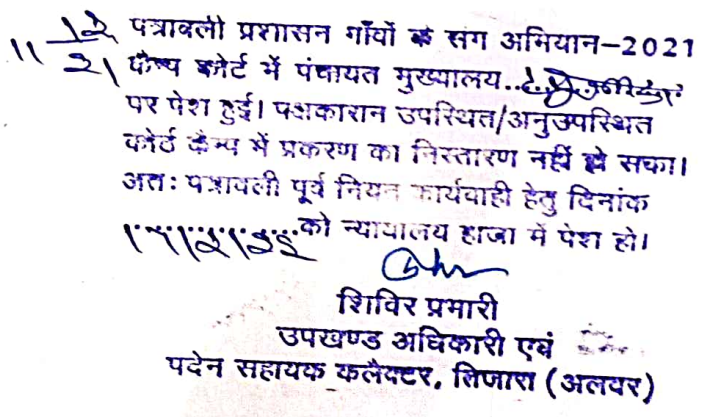 पत्रावली प्रशासन गाँवों के संग अभियान-2021
कैम्प कोर्ट में पंचायत मुख्यालय..
पर पेश हुई। पक्षकारान उपस्थित/अनुउपस्थित
कोर्ट कैम्प में प्रकरण का निस्तारण नहीं हो सका।
अतः पत्रावली पूर्व नियत कार्यवाही हेतु दिनांक
को न्यायालय हाजा में पेश हो।
शिविर प्रभारी
उपखण्ड अधिकारी एवं
पदेन सहायक कलैक्टर, तिजारा (अलवर)